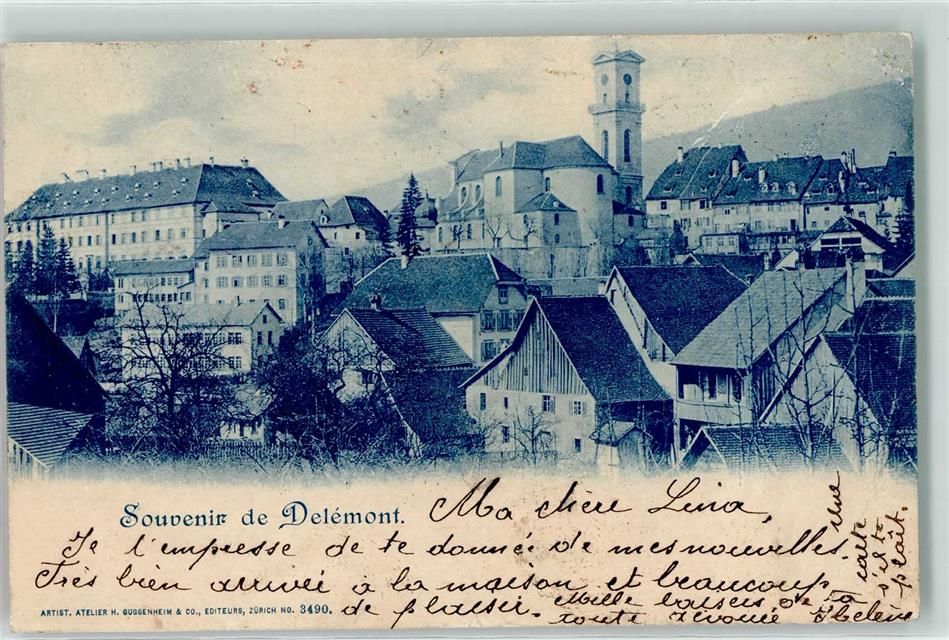 Souvenir de Delémont.
Ma chère Lina,
Je t'empresse de te donné de mes nouvelles.
Très bien arrivée à la maison et beaucoup
de plaisir. Mille baisers de ta
toute dévouée Hélène
s'il te plaît.
ARTIST. ATELIER H. GUGGENHEIM & CO., EDITEURS, ZÜRICH NO. 3490.